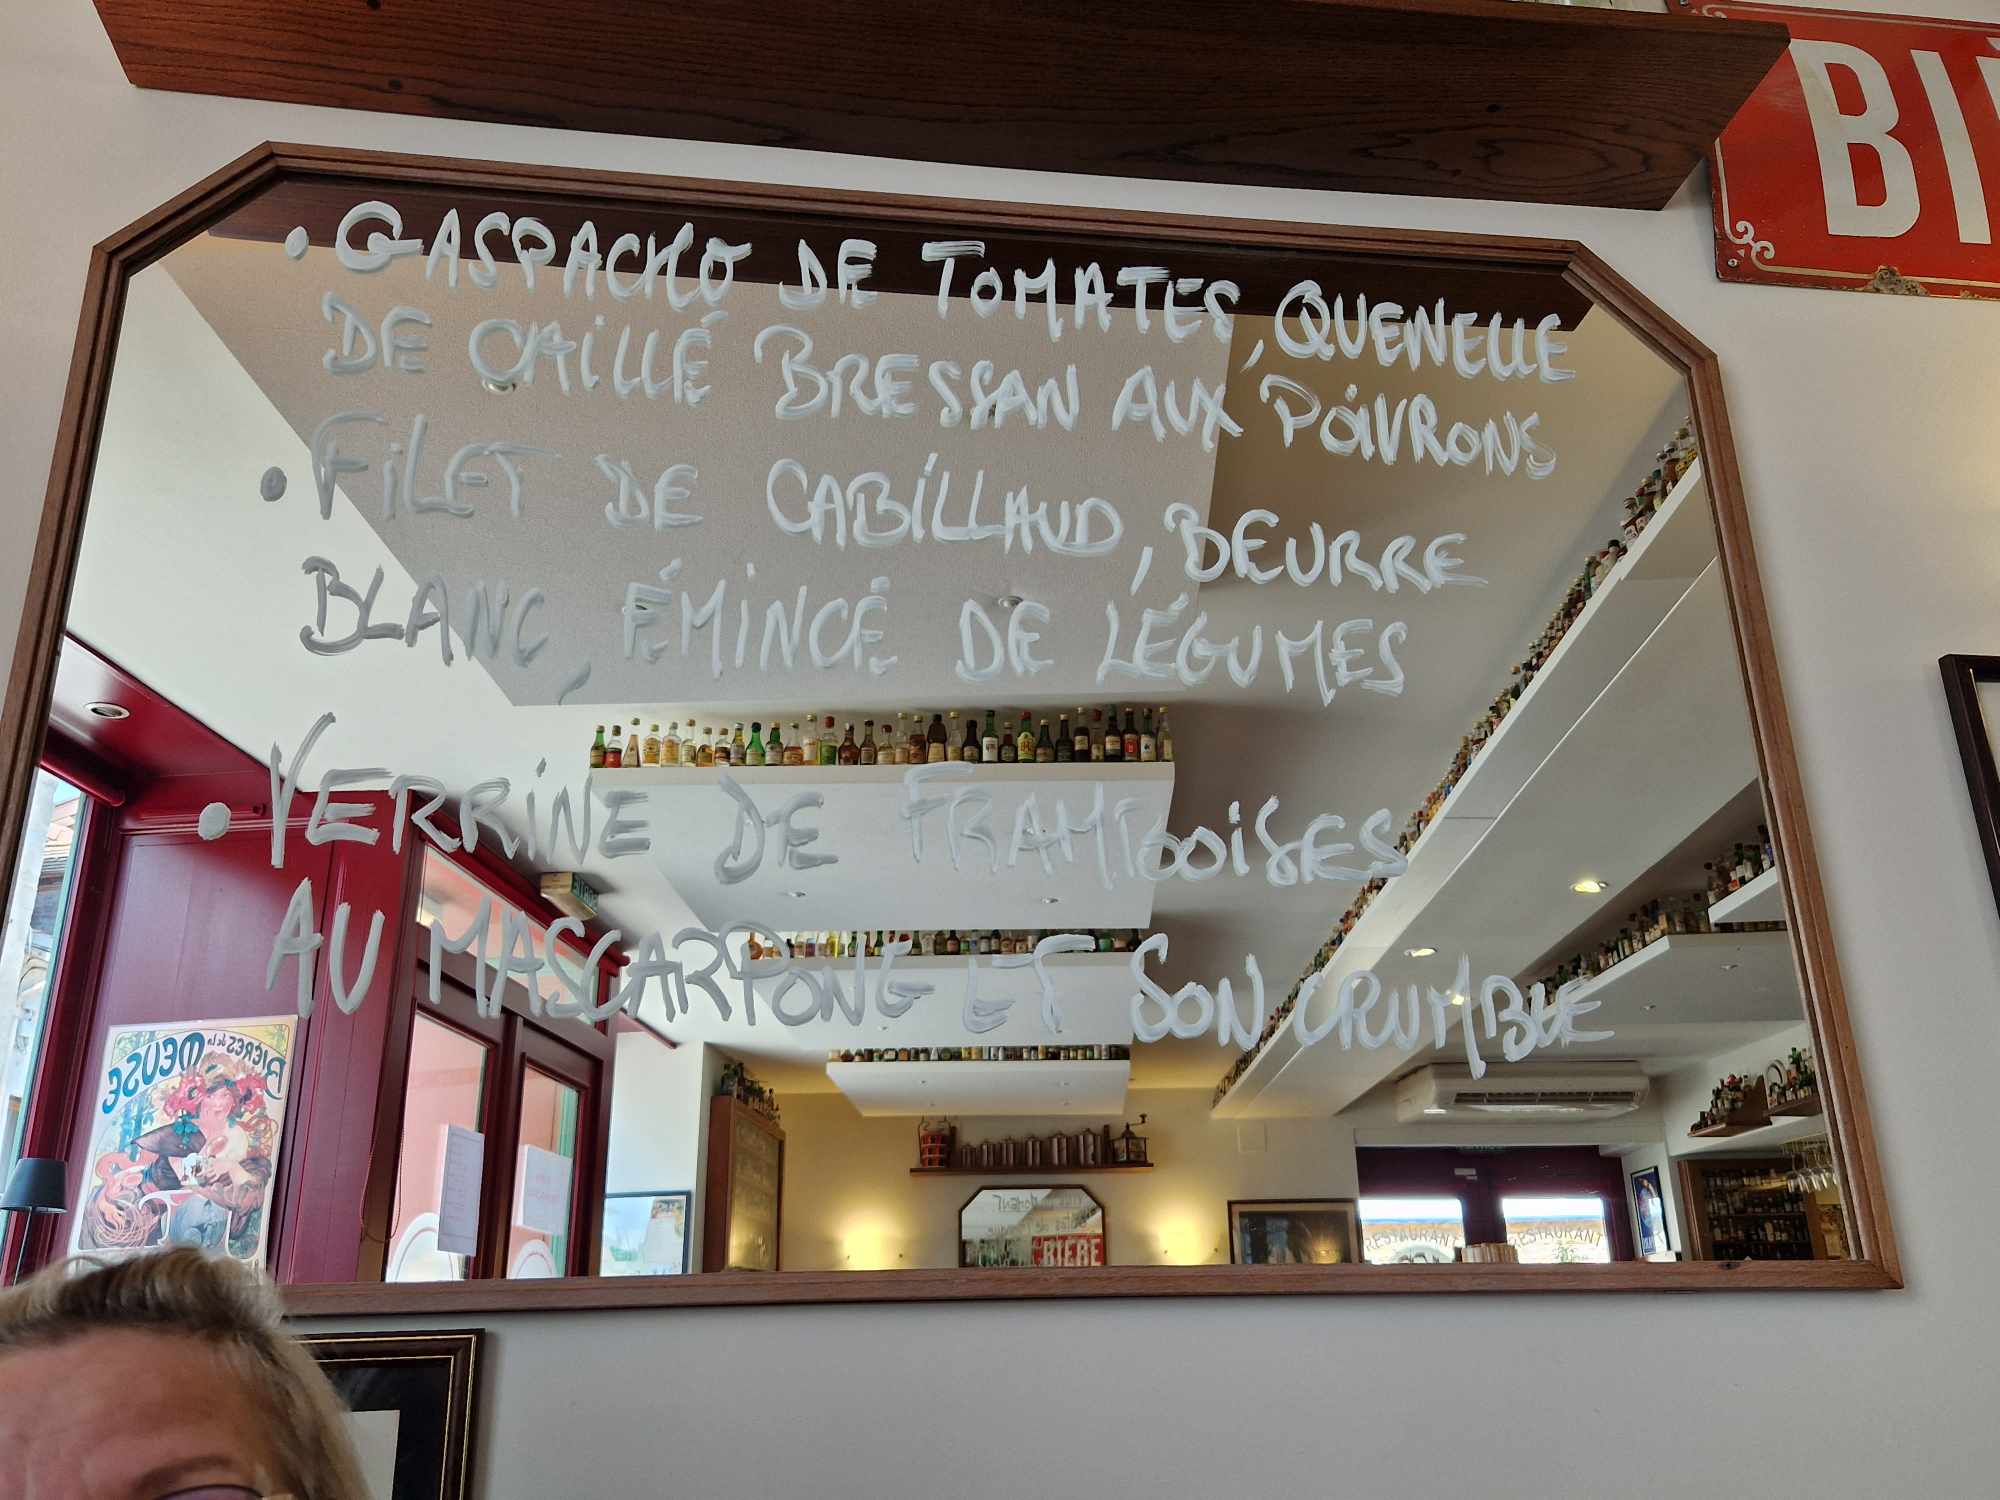 • GASPACHO DE TOMATES, QUENELLE
DE CAILLÉ BRESSAN AUX POIVRONS
• FILET DE CABILLAUD, BEURRE
BLANC, ÉMINCÉ DE LÉGUMES
• VERRINE DE FRAMBOISES
AU MASCARPONE ET SON CRUMBLE
BI
BIÈRES de la
MEUSE
BIÈRE
RESTAURANT
RESTAURANT